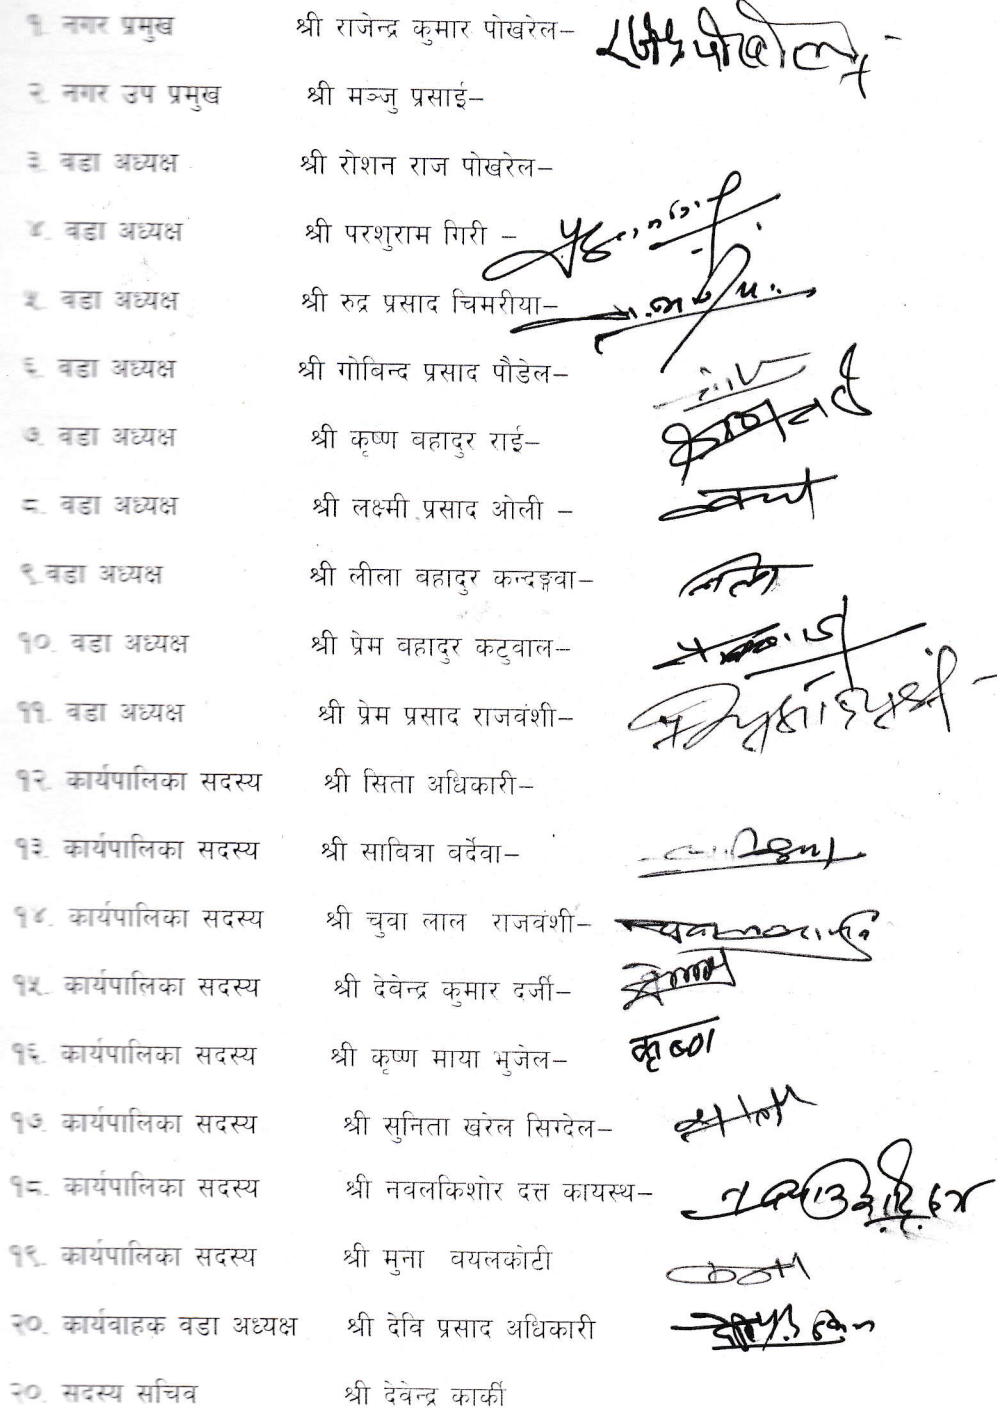 १. नगर प्रमुख श्री राजेन्द्र कुमार पोखरेल–
२. नगर उप प्रमुख श्री मञ्जु प्रसाई–
३. वडा अध्यक्ष श्री रोशन राज पोखरेल–
४. वडा अध्यक्ष श्री परशुराम गिरी –
५. वडा अध्यक्ष श्री रुद्र प्रसाद चिमरीया–
६. वडा अध्यक्ष श्री गोबिन्द प्रसाद पौडेल–
७. वडा अध्यक्ष श्री कृष्ण वहादुर राई–
८. वडा अध्यक्ष श्री लक्ष्मी प्रसाद ओली –
९.वडा अध्यक्ष श्री लीला वहादुर कन्दङ्गवा–
१०. वडा अध्यक्ष श्री प्रेम वहादुर कटुवाल–
११. वडा अध्यक्ष श्री प्रेम प्रसाद राजवंशी–
१२. कार्यपालिका सदस्य श्री सिता अधिकारी–
१३. कार्यपालिका सदस्य श्री सावित्रा वर्देवा–
१४. कार्यपालिका सदस्य श्री चुवा लाल राजवंशी–
१५. कार्यपालिका सदस्य श्री देवेन्द्र कुमार दर्जी–
१६. कार्यपालिका सदस्य श्री कृष्ण माया भुजेल– कृष्ण
१७. कार्यपालिका सदस्य श्री सुनिता खरेल सिग्देल–
१८. कार्यपालिका सदस्य श्री नवलकिशोर दत्त कायस्थ–
१९. कार्यपालिका सदस्य श्री मुना वयलकोटी
२०. कार्यवाहक वडा अध्यक्ष श्री देवि प्रसाद अधिकारी
२०. सदस्य सचिव श्री देवेन्द्र कार्की